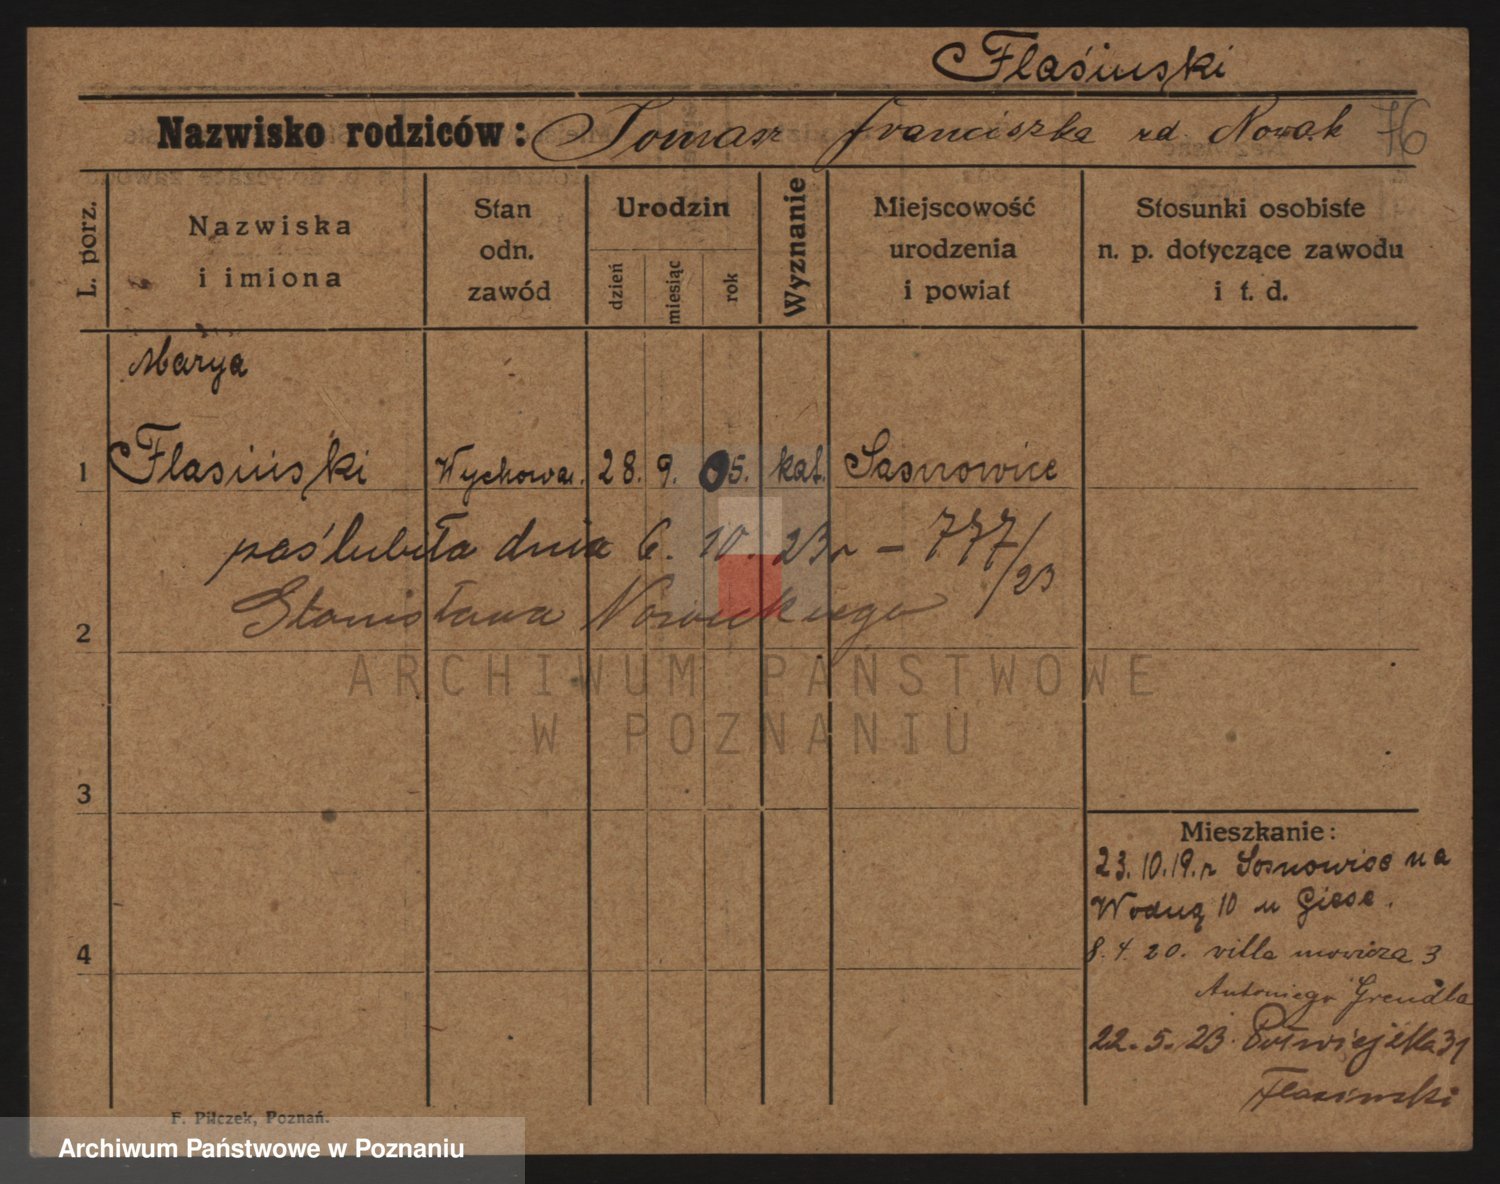 Flasiński
Nazwisko rodziców: Tomasz Franciszka rd. Nowak 76
L. porz.
Nazwiska
i imiona
Stan
odn.
zawód
Urodzin
dzień
miesiąc
rok
Wyznanie
Miejscowość
urodzenia
i powiat
Stosunki osobiste
n. p. dotyczące zawodu
i t. d.
Marya
1 Flasiński Wychowan. 28. 9. 05. kat. Sasnowice
paślubiła dnia 6. 10. 23 r – 777/23
2 Stanisława Nowickiego
3
4
Mieszkanie:
23.10.19.r Sosnowice na
Wodną 10 u Giese.
8. 4. 20. villa 3
Antoniego Grendla
22.-5.-23. Półwiejska 31
Flasiński
F. Pilczek, Poznań.
ARCHIWUM PAŃSTWOWE
W POZNANIU
Archiwum Państwowe w Poznaniu